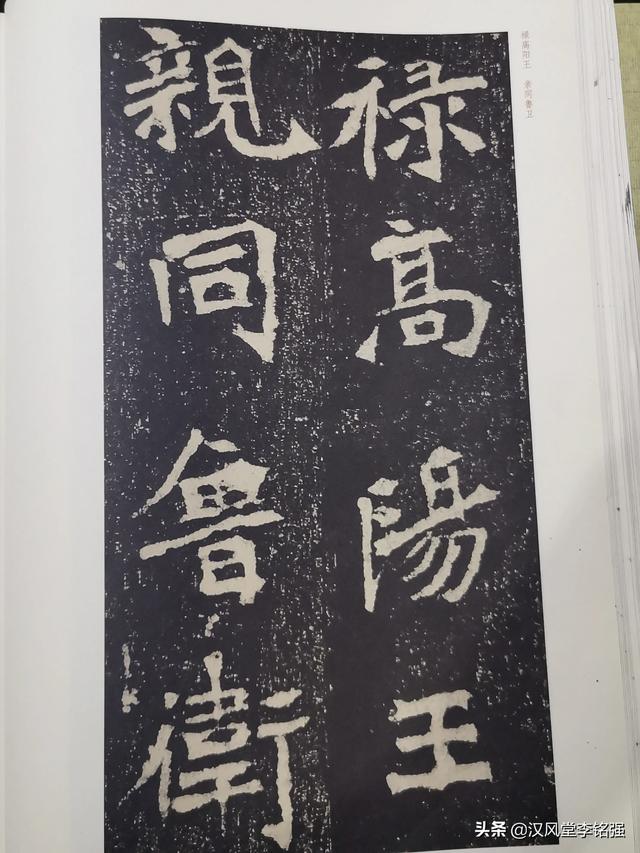 禄高陽王
親同魯衛
禄高阳王 亲同鲁卫
头条 @汉风堂李铭强